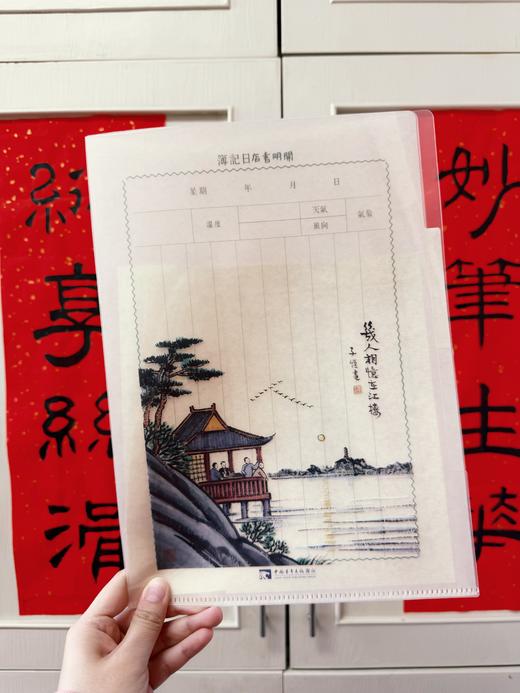 開明書店日記簿
星期 年 月 日
溫度
天氣
風向
幾人相憶在江樓
子愷畫
中国青年出版社
妙筆生
享絲滑